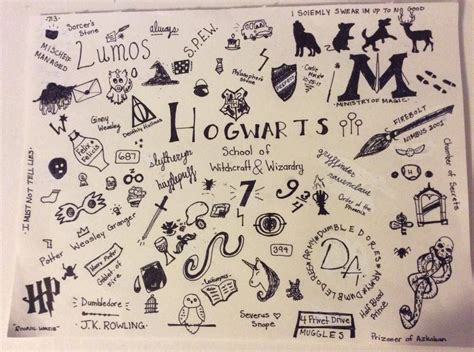 ·713·
Sorcer's
Stone
always
MISCHEF
MANAGED
Lumos
S.P.E.W.
I SOLEMLY SWEAR IM UP TO NO GOOD
Philosophers
Stone
MINISTRY OF MAGIC
M
FIREBOLT
NIMBUS 2001
W
Ginny
Weasley
Deathly Hallows
HOGWARTS
School of
Witchcraft & Wizardry
Felix
Felicis
687
slytheryn
hufflepuff
gryffindor
ravenclaw
I MUST NOT TELL LIES
7
9 3/4
Order of the
Phoenix
H
Chamber of Secrets
Potter Weasley Granger
Goblet of
Fire
394
DUMBLEDORE'S ARMY
DA
HP
Dumbledore
J.K. ROWLING
Severus
Snape
4 Privet Drive
MUGGLES
Half Blood
Prince
Prizoner of Azkaban